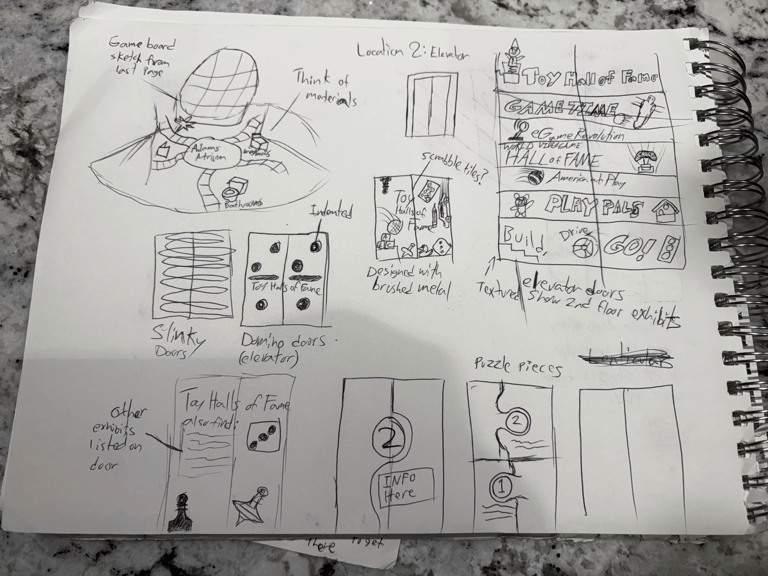 Game board
sketch from
last page
Think of
materials
Adams
Atrium
Bathrooms
Location 2: Elevator
scrabble tiles?
Toy
Halls of
Fame
Designed with
brushed metal
TOY Hall of Fame
GAME TIME
eGameRevolution
WORLD VIDEOGAME
HALL of FAME
America at Play
PLAY PALS
Build, Drive, GO!
Textured
elevator doors
show 2nd floor exhibits
Slinky
Doors
Indented
Toy Halls of Fame
Domino doors
(elevator)
Other
exhibits
listed on
door
Toy Halls of Fame
also find:
2
INFO
Here
Puzzle Pieces
2
1
There to get